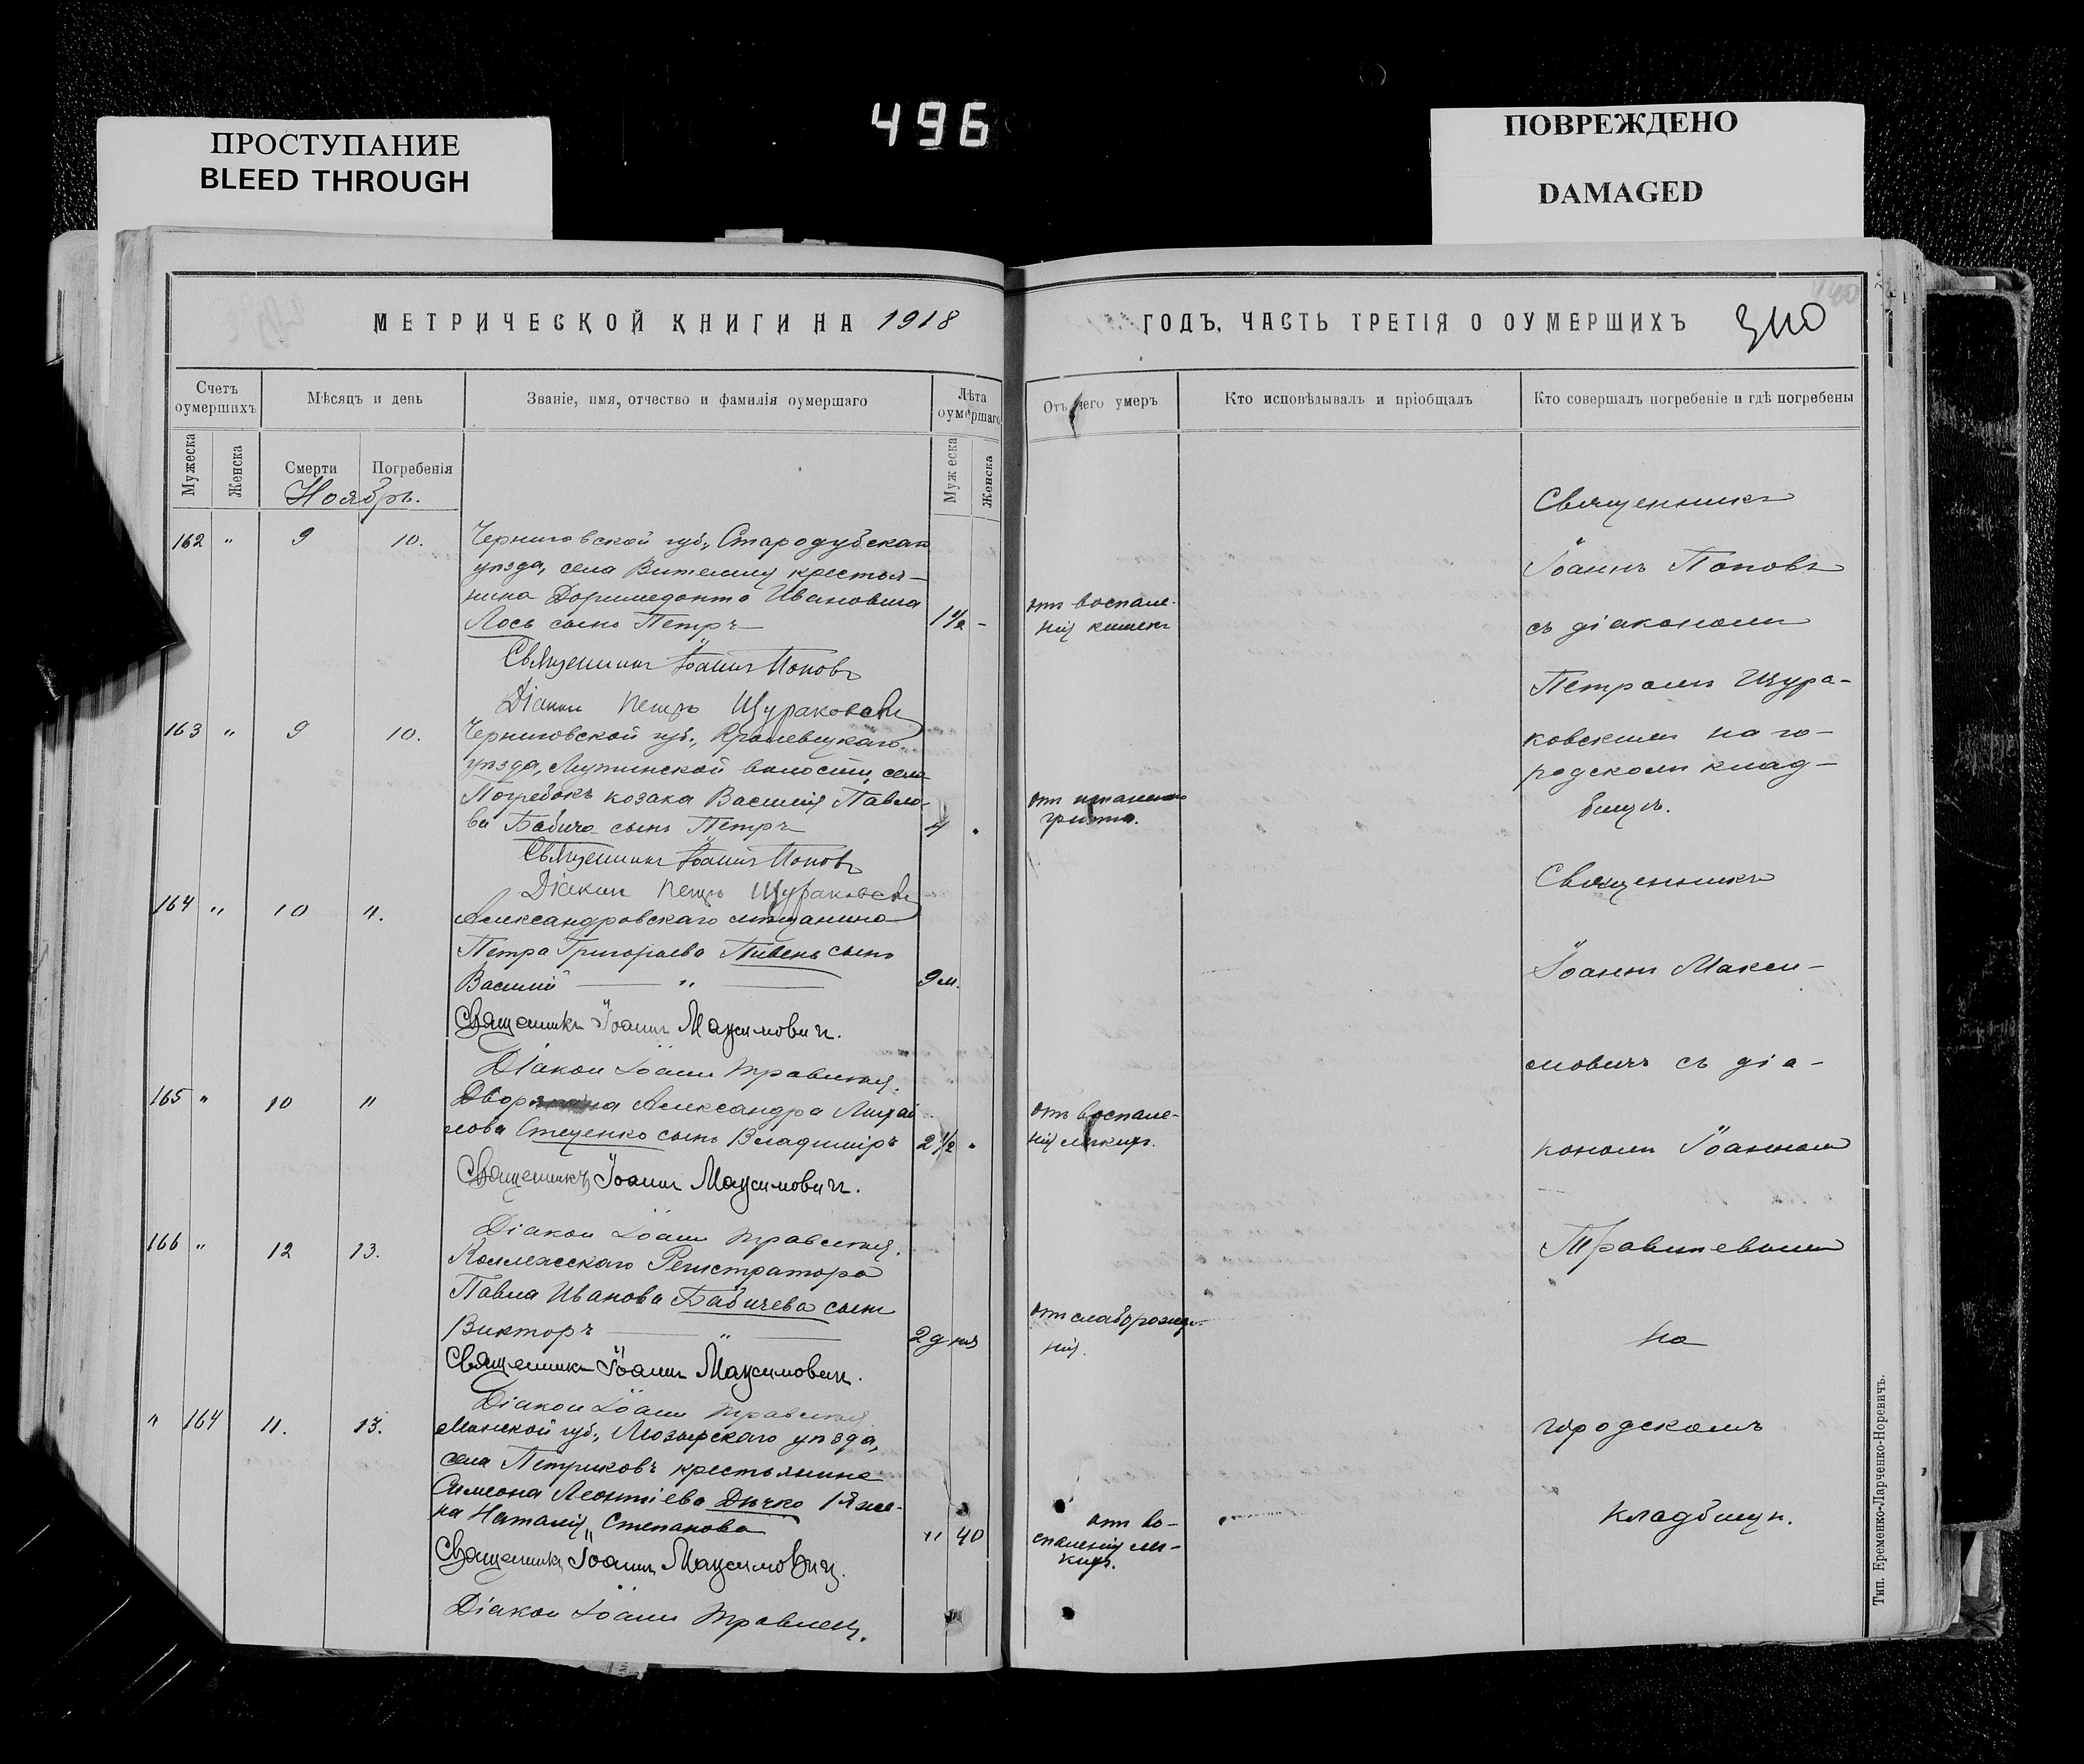 496
ПРОСТУПАНИЕ
BLEED THROUGH
ПОВРЕЖДЕНО
DAMAGED
МЕТРИЧЕСКОЙ КНИГИ НА 1918
Счетъ оумершихъ
Мѣсяцъ и день
Званіе, имя, отчество и фамилія оумершаго
Лѣта оумершаго
Мужеска
Женска
Смерти
Погребенія
Мужеска
Женска
Ноябрь.
162 " 9 10.
Черниговской губ., Стародубскаго
уѣзда, села Витемли крестья-
нина Доримедонта Ивановича
Лось сынъ Петръ 1 1/2 -
Священникъ Іоаннъ Поповъ
Діаконъ Петръ Щураковскій
163 " 9 10.
Черниговской губ., Кролевецкаго
уѣзда, Мутинской волости, села
Погребокъ козака Василія Павло-
ва Бабича сынъ Петръ 4
Священникъ Іоаннъ Поповъ
Діаконъ Петръ Щураковскій
164 " 10 11.
Александровскаго мѣщанина
Петра Григорьева Пивень сынъ
Василій " 9 м.
Священникъ Іоаннъ Максимовичъ.
Діаконъ Іоаннъ
165 " 10 11
Дворянина Александра Михай
лова Стеценко сынъ Владиміръ 2 1/2 "
Священникъ Іоаннъ Максимовичъ.
Діаконъ Іоаннъ
166 " 12 13.
Коллежскаго Регистратора
Павла Иванова Бабичева сынъ
Викторъ " 2 дня
Священникъ Іоаннъ Максимовичъ.
Діаконъ Іоаннъ
" 164 11. 13.
Минской губ., Мозырскаго уѣзда,
села Петриковъ крестьянина
Симеона Леонтіева Дѣчко 1я же-
на Наталія Степанова " 40
Священникъ Іоаннъ Максимовичъ.
Діаконъ Іоаннъ
ГОДЪ, ЧАСТЬ ТРЕТІЯ О ОУМЕРШИХЪ 340
Отъ чего умеръ
Кто исповѣдывалъ и пріобщалъ
Кто совершалъ погребеніе и гдѣ погребены
отъ воспале-
нія кишекъ
отъ испанскаго
гриппа.
отъ воспале-
нія легкихъ.
отъ слаборожде-
нія.
отъ во-
спаленія лег-
кихъ.
Священникъ
Іоаннъ Поповъ
съ діакономъ
Петромъ Щура-
ковскимъ на го-
родскомъ клад-
бищѣ.
Священникъ
Іоаннъ Макси-
мовичъ съ діа-
кономъ Іоанномъ
на
городскомъ
кладбищѣ.
Тип. Еременко-Ларченко-Норевичъ.